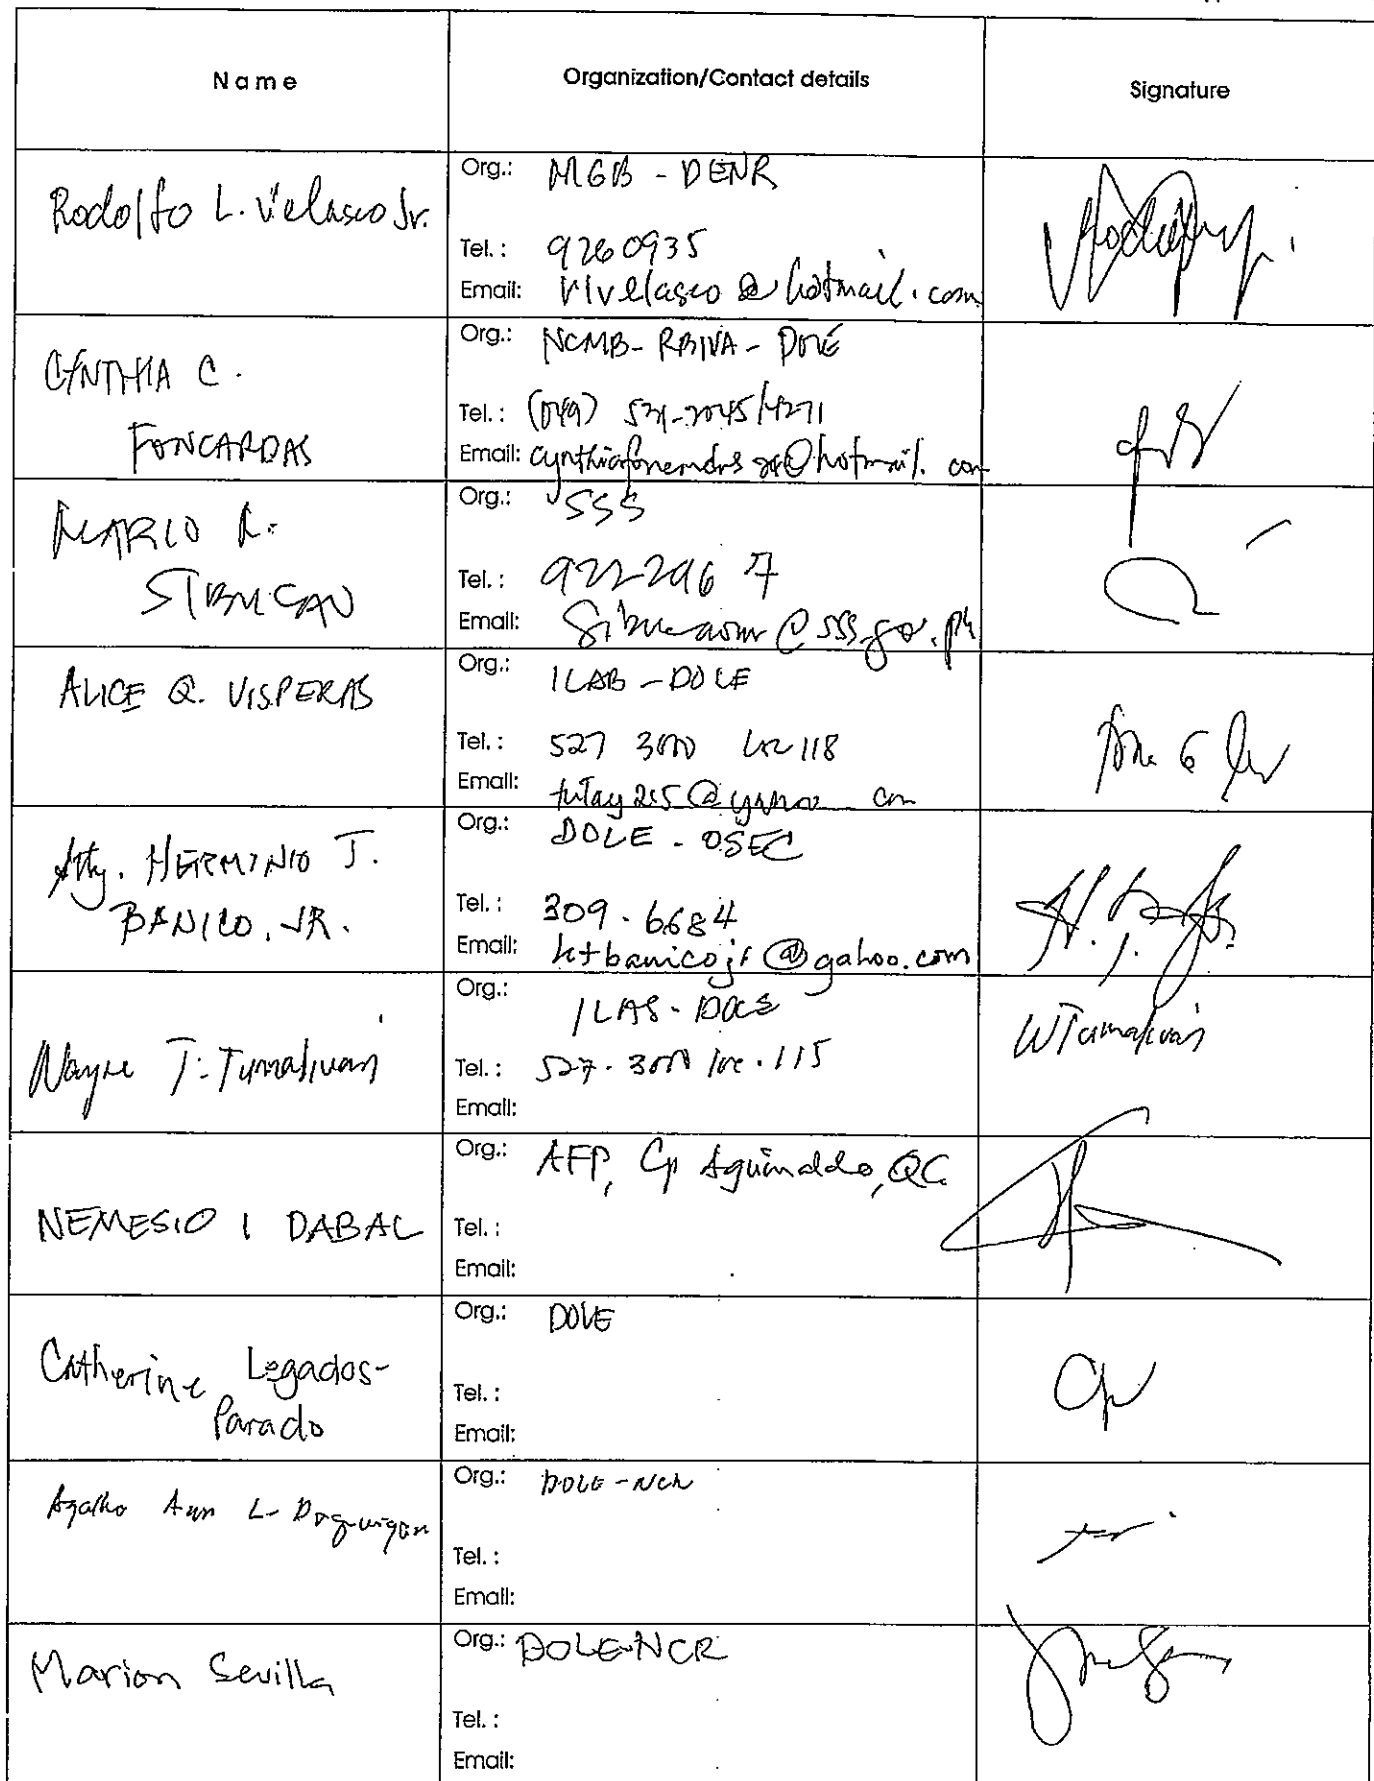 Name Organization/Contact details Signature
Rodolfo L. Velasco Jr.
Org.: MGB - DENR
Tel.: 9260935
Email: rlvelasco@hotmail.com
CYNTHIA C.
FONCARDAS
Org.: NCMB- RBIVA - DOLE
Tel.: (049)
Email: @hotmail.com
MARIO R.
SIBUCAO
Org.: SSS
Tel.: 922-2967
Email: @sss.gov.ph
ALICE Q. VISPERAS
Org.: ILAB - DOLE
Tel.: 527 3000 loc 118
Email:
Atty. HERMINIO T.
BANICO, JR.
Org.: DOLE - OSEC
Tel.: 309-6684
Email: htbanicojr@yahoo.com
Wayne T. Tumaliuan
WTumaliuan
Org.: ILAS - DOLE
Tel.: 527-3000 loc. 115
Email:
NEMESIO I DABAL
Org.: AFP, Cp Aguinaldo, QC
Tel.:
Email:
Catherine Legados-
Parado
Org.: DOLE
Tel.:
Email:
Ann L.
Org.: DOLE - NCR
Tel.:
Email:
Marion Sevilla
Org.: DOLE-NCR
Tel.:
Email: